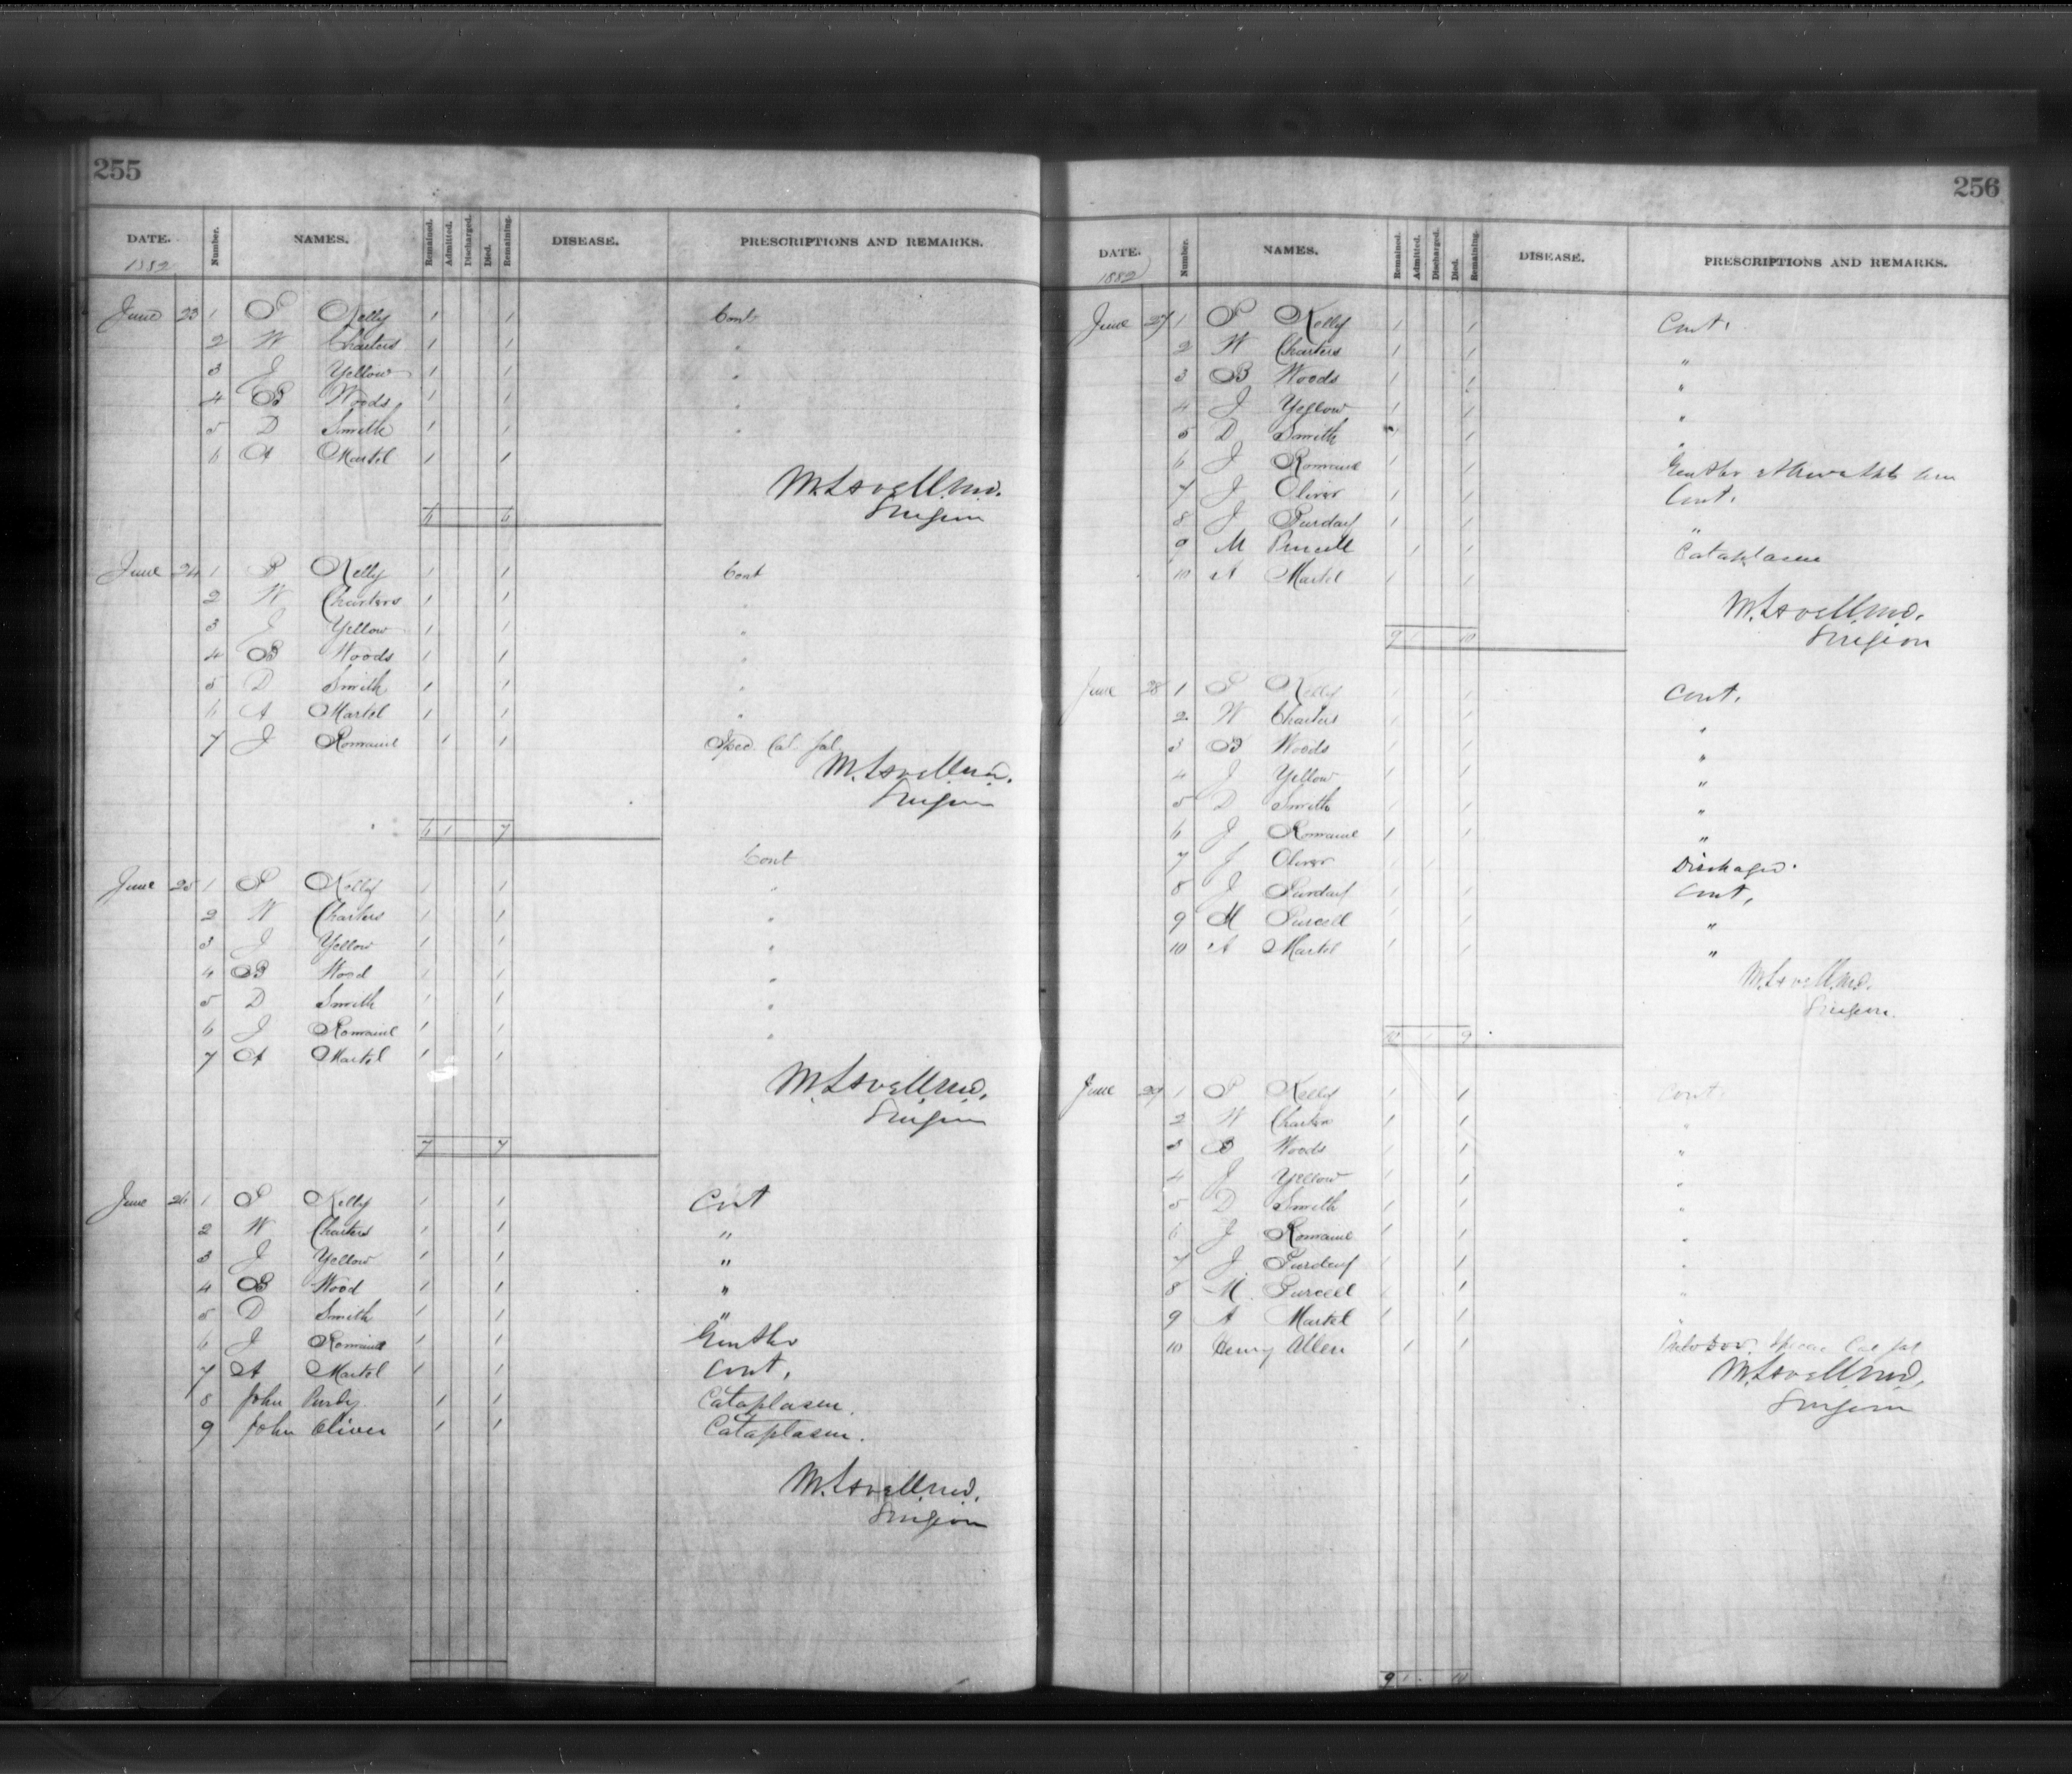 255
DATE. Number. NAMES. Remained. Admitted. Discharged. Died. Remaining. DISEASE. PRESCRIPTIONS AND REMARKS.
1882
June 23 1 P Kelly 1 1 Cont
2 W Charters 1 1 "
3 J Yellow 1 1 "
4 B Woods 1 1 "
5 D Smith 1 1 "
6 A Martel 1 1
M. Lavell M.D.
Surgeon
6 6
June 24 1 P Kelly 1 1 Cont
2 W Charters 1 1 "
3 J Yellow 1 1 "
4 B Woods 1 1 "
5 D Smith 1 1 "
6 A Martel 1 1 "
7 J Romaine 1 1 Cal Jal
M. Lavell M.D.
Surgeon
6 1 7
Cont
June 25 1 P Kelly 1 1 "
2 W Charters 1 1 "
3 J Yellow 1 1 "
4 B Wood 1 1 "
5 D Smith 1 1 "
6 J Romaine 1 1 "
7 A Martel 1 1
M. Lavell M.D.
Surgeon
7 7
June 26 1 P Kelly 1 1 Cont
2 W Charters 1 1 "
3 J Yellow 1 1 "
4 B Wood 1 1 "
5 D Smith 1 1 "
6 J Romaine 1 1
7 A Martel 1 1 Cont.
8 John 1 1 Cataplasm.
9 John Oliver 1 1 Cataplasm.
M. Lavell M.D.
Surgeon
256
DATE. Number. NAMES. Remained. Admitted. Discharged. Died. Remaining. DISEASE. PRESCRIPTIONS AND REMARKS.
1882
June 27 1 P Kelly 1 1 Cont.
2 W Charters 1 1 "
3 B Woods 1 1 "
4 J Yellow 1 1 "
5 D Smith 1 "
6 J Romaine 1 1
7 J Oliver 1 1 Cont.
8 J Purday 1 1 "
9 M Purcell 1 1 Cataplasm
10 A Martel 1 1
M. Lavell M.D.
Surgeon
9 1 10
June 28 1 P Kelly 1 1 Cont.
2 W Charters 1 1 "
3 B Woods 1 1 "
4 J Yellow 1 1 "
5 D Smith 1 1 "
6 J Romaine 1 1 "
7 J Oliver 1 1 Discharged.
8 J Purday 1 1 Cont.
9 M Purcell 1 1 "
10 A Martel 1 1 "
M. Lavell M.D.
Surgeon.
10 1 9
June 29 1 P Kelly 1 1 Cont.
2 W Charters 1 1 "
3 B Woods 1 1 "
4 J Yellow 1 1 "
5 D Smith 1 1 "
6 J Romaine 1 1 "
7 J Purday 1 1 "
8 M. Purcell 1 1 "
9 A Martel 1 1 "
10 Henry Allen 1 1 Cal Jal
M. Lavell M.D.
Surgeon
9 1 10